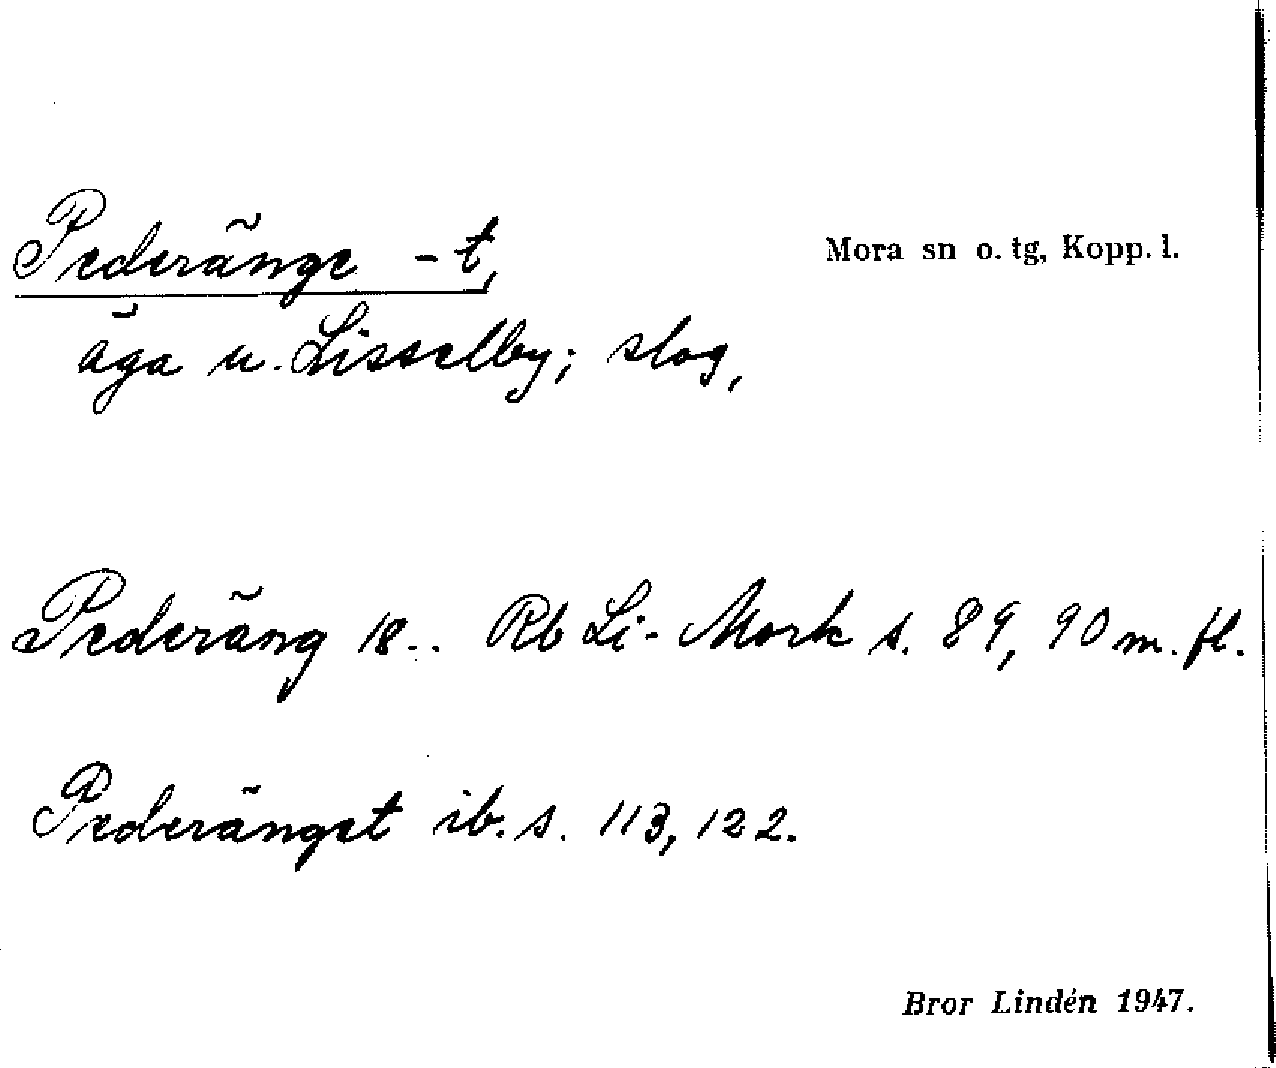 Pederänge -t,
Mora sn o. tg, Kopp. l.
äga u. Lisselby; slog,
Pederäng 18.. Rb Li-Mork s. 89, 90 m. fl.
Pederänget ib. s. 113, 122.
Bror Lindén 1947.